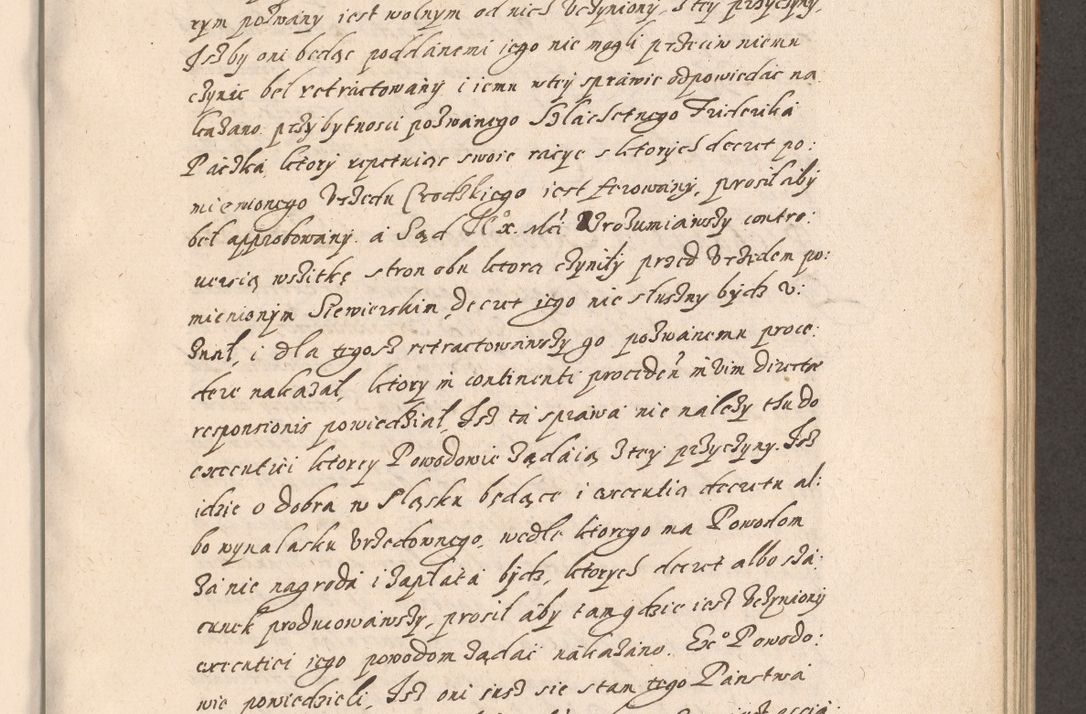 rym pozwany iest wolnym od nich vczyniony, z tey przyczyny,
Iszby oni będąc poddanemi iego nie mogli przeciw niemu
czynic bel retractowany i iemu wtey sprawie odpowiedac na
kazano. przy bytnosci pozwanego Szlachetnego Friderika
Paczka, ktory repetuiąc swoie racye z ktorych decret po:
mienionego Vrzędu Grodzkiego iest ferowany, prosił aby
beł approbowany. a Sąd Je° x. Mći Wrozumiawszy contro:
uersią wszitkę stron obu ktorą czyniły przed Vrzędem po:
mienionym Siewierskim, decret iego nie słuszny bydz v:
znał, i dla tegosz retractowawszy go pozwanemu proce:
dere nakazał, ktory in continenti proceden' in vim directæ
responsionis powiedział, Isz ta sprawa nie nalezy tu do
executiei ktorey Powodowie ządaią, z tey przyczyny. Isz
idzie o dobra w Sląsku będące i executią decretu al:
bo wynalasku vrzędownego, wedle ktorego ma Powodom
za nie nagroda i zapłata bydz, ktorych decret albo sza:
cunek producowawszy, prosił aby tam gdzie iest vczyniony
executiei iego powodom ządać nakazano. Ex° Powodo:
wie powiedzieli, Isz oni iusz sie stam tego Panstwa